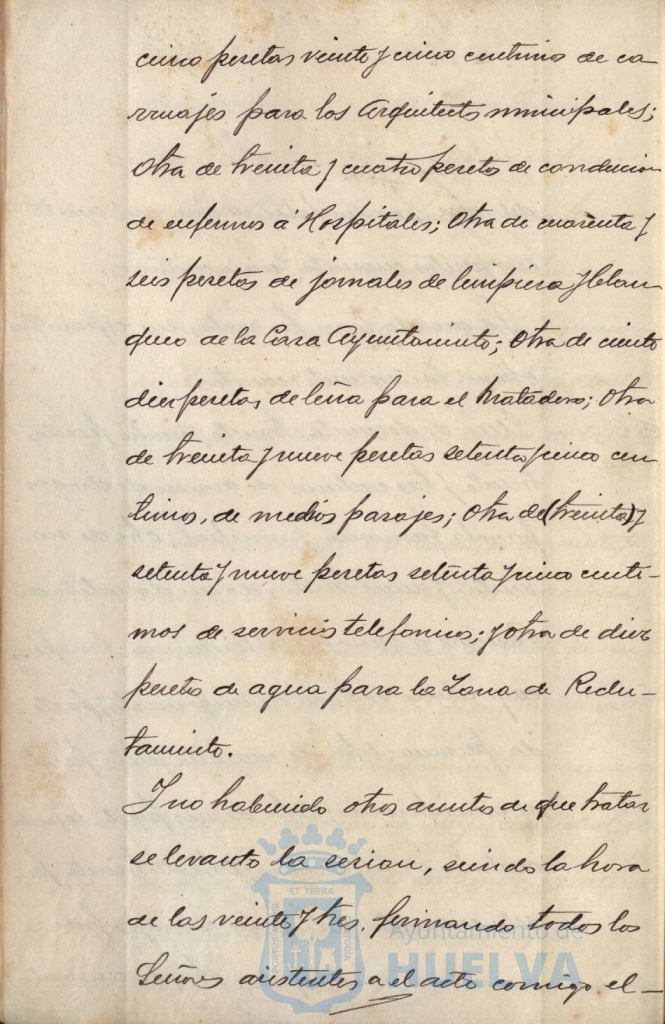 cinco pesetas veinte y cinco centimos de ca
rruajes para los Arquitectos municipales;
Otra de treinta y cuatro pesetas de conduccion
de enfermos á Hospitales; Otra de cuarenta y
seis pesetas de jornales de limpieza y blan
queo de la Casa Ayuntamiento; Otra de ciento
diez pesetas de leña para el Matadero; Otra
de treinta y nueve pesetas setenta y cinco cen
timos, de medios pasajes; Otra de (treinta) y
setenta y nueve pesetas setenta y cinco centi-
mos de servicios telefonicos; y otra de diez
pesetas de agua para la Zona de Reclu-
tamiento.
Y no habiendo otros asuntos de que tratar
se levanto la sesion, siendo la hora
de las veinte y tres, firmando todos los
Señores asistentes a el acto conmigo el-
ET TERRÆ
Ayuntamiento de
HUELVA